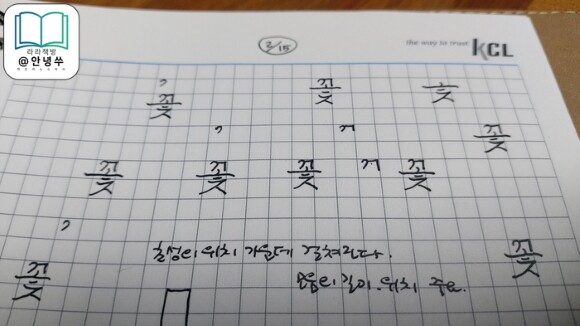 라라책방
@안녕쑤
2/15
the way to trust KCL
꽃 꽃
꽃
꽃 꽃 꽃 꽃
위치 가운데 걸쳐진다.
꽃 꽃
모음의 길이. 위치